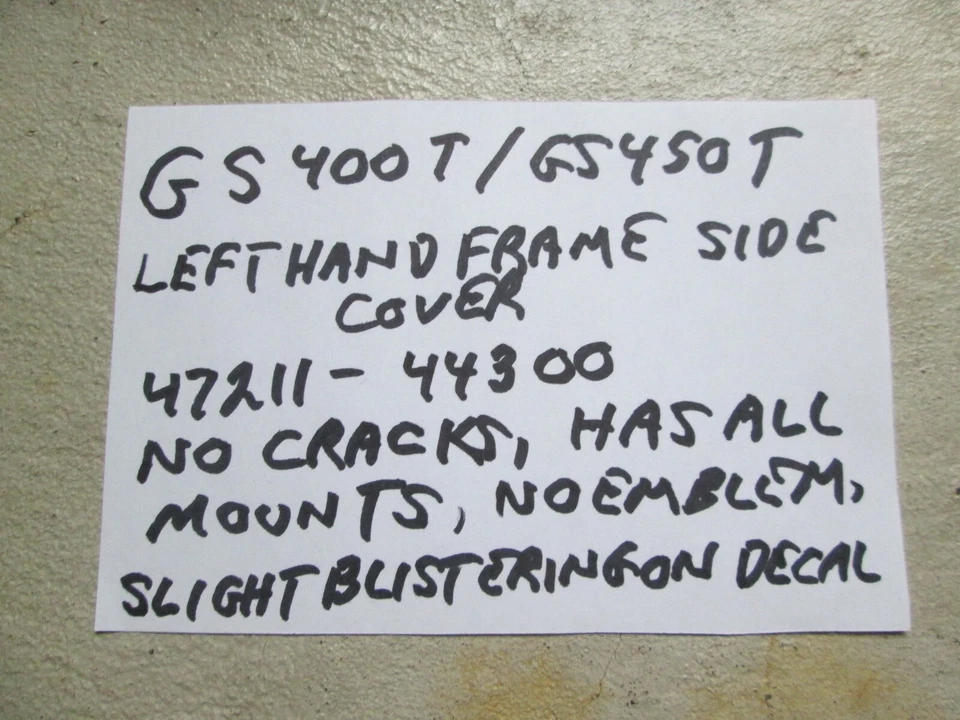 GS400T/GS450T
LEFT HAND FRAME SIDE
COVER
47211-44300
NO CRACKS, HAS ALL
MOUNTS, NO EMBLEM,
SLIGHT BLISTERING ON DECAL